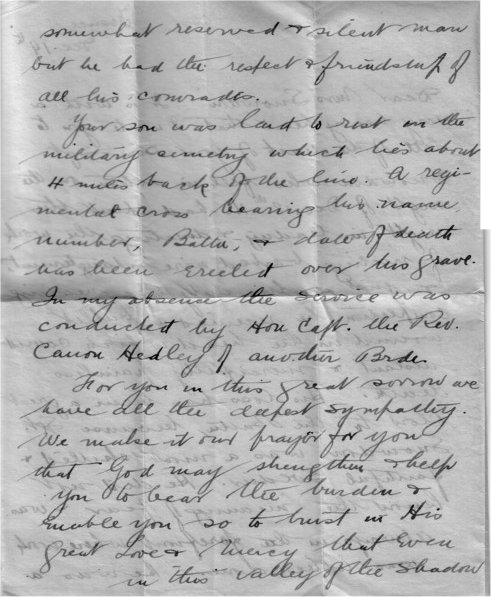 somewhat reserved & silent man
but he had the respect & friendship of
all his comrades.
Your son was laid to rest in the
military cemetry which lies about
4 miles back of the line. A regi-
mental cross bearing his name
number, Battn, & date of death
has been erected over his grave.
In my absence the service was
conducted by Hon Capt. the Rev.
Canon Hedley of another Brde.
For you in this great sorrow we
have all the deepest sympathy.
We make it our prayer for you
that God may strengthen & help
you to bear the burden &
enable you so to trust in His
great Love & Mercy that even
in this valley of the Shadow